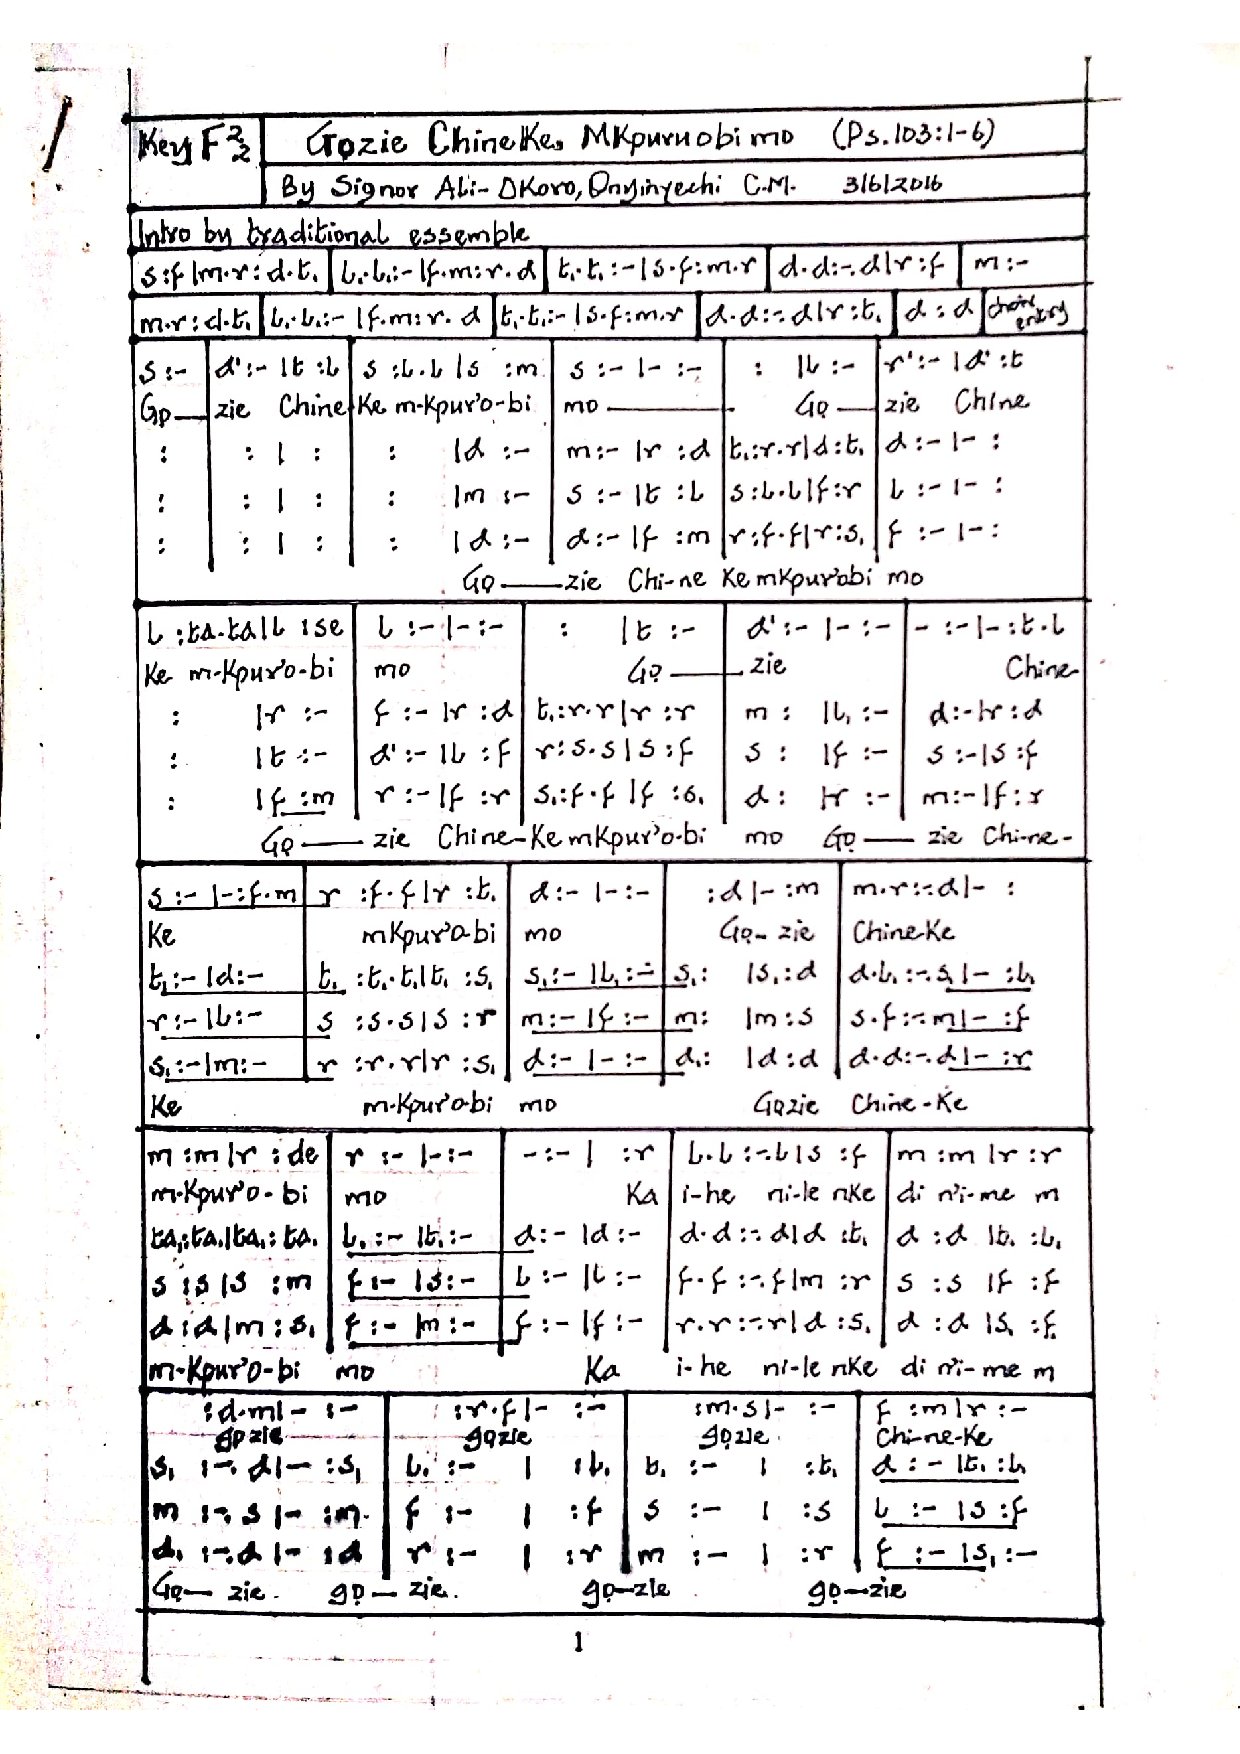 Key F 2/2 Gọzie ChineKe, MKpuruobi mo (Ps.103:1-6)
By Signor Ali-Okoro, Onyinyechi C.M. 3/6/2016
Intro by traditional essemble
s :f |m.r : d.t, | l,.l,:- |f.m:r.d | t,.t,:- |s.f:m.r | d.d:-.d|r :f | m :-
m.r : d.t, | l,.l,:- |f.m:r.d | t,.t,:- |s.f:m.r | d.d:-.d|r :t, | d : d | choir entry
s :- | d' :- |t :l | s :l.l |s :m | s :- |- :- | : |l :- | r' :- |d' :t
Gọ— zie Chine Ke m-Kpur'o-bi mo —— Gọ— zie Chine
: | : | : | : |d :- | m :- |r :d | t,:r.r|d:t, | d :- |- :
: | : | : | : |m :- | s :- |t :l | s:l.l|f:r | l :- |- :
: | : | : | : |d :- | d :- |f :m | r:f.f|r:s, | f :- |- :
Gọ—— zie Chi-ne Ke mKpur'obi mo
l :ta.ta|l :se | l :- |- :- | : |t :- | d' :- |- :- | - :- |- :t.l
Ke m-Kpur'o-bi mo Gọ—— zie Chine-
: |r :- | f :- |r :d | t,:r.r|r :r | m : |l, :- | d :- |r :d
: |t :- | d' :- |l :f | r:s.s|s :f | s : |f :- | s :- |s :f
: |f :m | r :- |f :r | s,:f.f|f :s, | d : |r :- | m :- |f :r
Gọ—— zie Chine-Ke mKpur'o-bi mo Gọ—— zie Chi-ne-
s :- |- :f.m | r :f.f|r :t, | d :- |- :- | :d |- :m | m.r:-.d|- :
Ke mKpur'o-bi mo Gọ- zie Chine-Ke
t, :- |d :- | t, :t,.t,|t, :s, | s, :- |l, :- | s, : |s, :d | d.l,:-.s,|- :l,
r :- |l :- | s :s.s|s :r | m :- |f :- | m : |m :s | s.f:-.m|- :f
s, :- |m :- | r :r.r|r :s, | d :- |- :- | d, : |d :d | d.d:-.d|- :r
Ke m-Kpur'o-bi mo Gọzie Chine-Ke
m :m |r :de | r :- |- :- | - :- | :r | l.l:-.l|s :f | m :m |r :r
m-Kpur'o-bi mo Ka i-he ni-le nKe di n'i-me m
ta,:ta,|ta,:ta, | l, :- |t, :- | d :- |d :- | d.d:-.d|d :t, | d :d |t, :l,
s :s |s :m | f :- |s :- | l :- |l :- | f.f:-.f|m :r | s :s |f :f
d :d |m :s, | f :- |m :- | f :- |f :- | r.r:-.r|d :s, | d :d |s, :f,
m-Kpur'o-bi mo Ka i-he ni-le nKe di n'i-me m
:d.m|- :- | :r.f|- :- | :m.s|- :- | f :m |r :-
gọzie gọzie gọzie Chi-ne-Ke
s, :-.d|- :s, | l, :- | :l, | t, :- | :t, | d :- |t, :l,
m :-.s|- :m | f :- | :f | s :- | :s | l :- |s :f
d, :-.d|- :d | r :- | :r | m :- | :r | f :- |s, :-
Gọ— zie. gọ— zie. gọ—zie gọ—zie
1